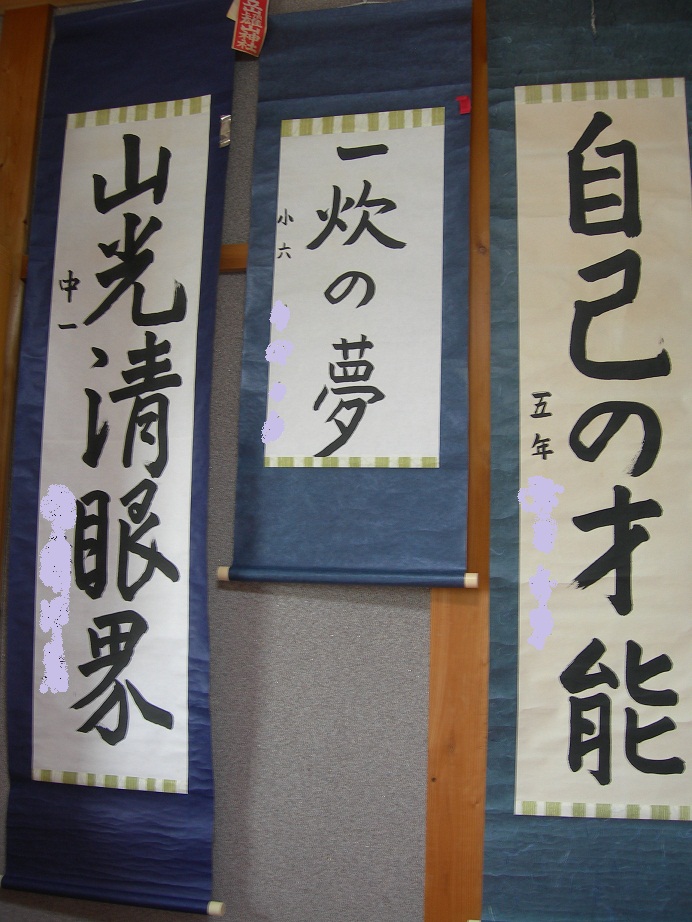 自己の才能
五年
一炊の夢
小六
山光清眼界
中一